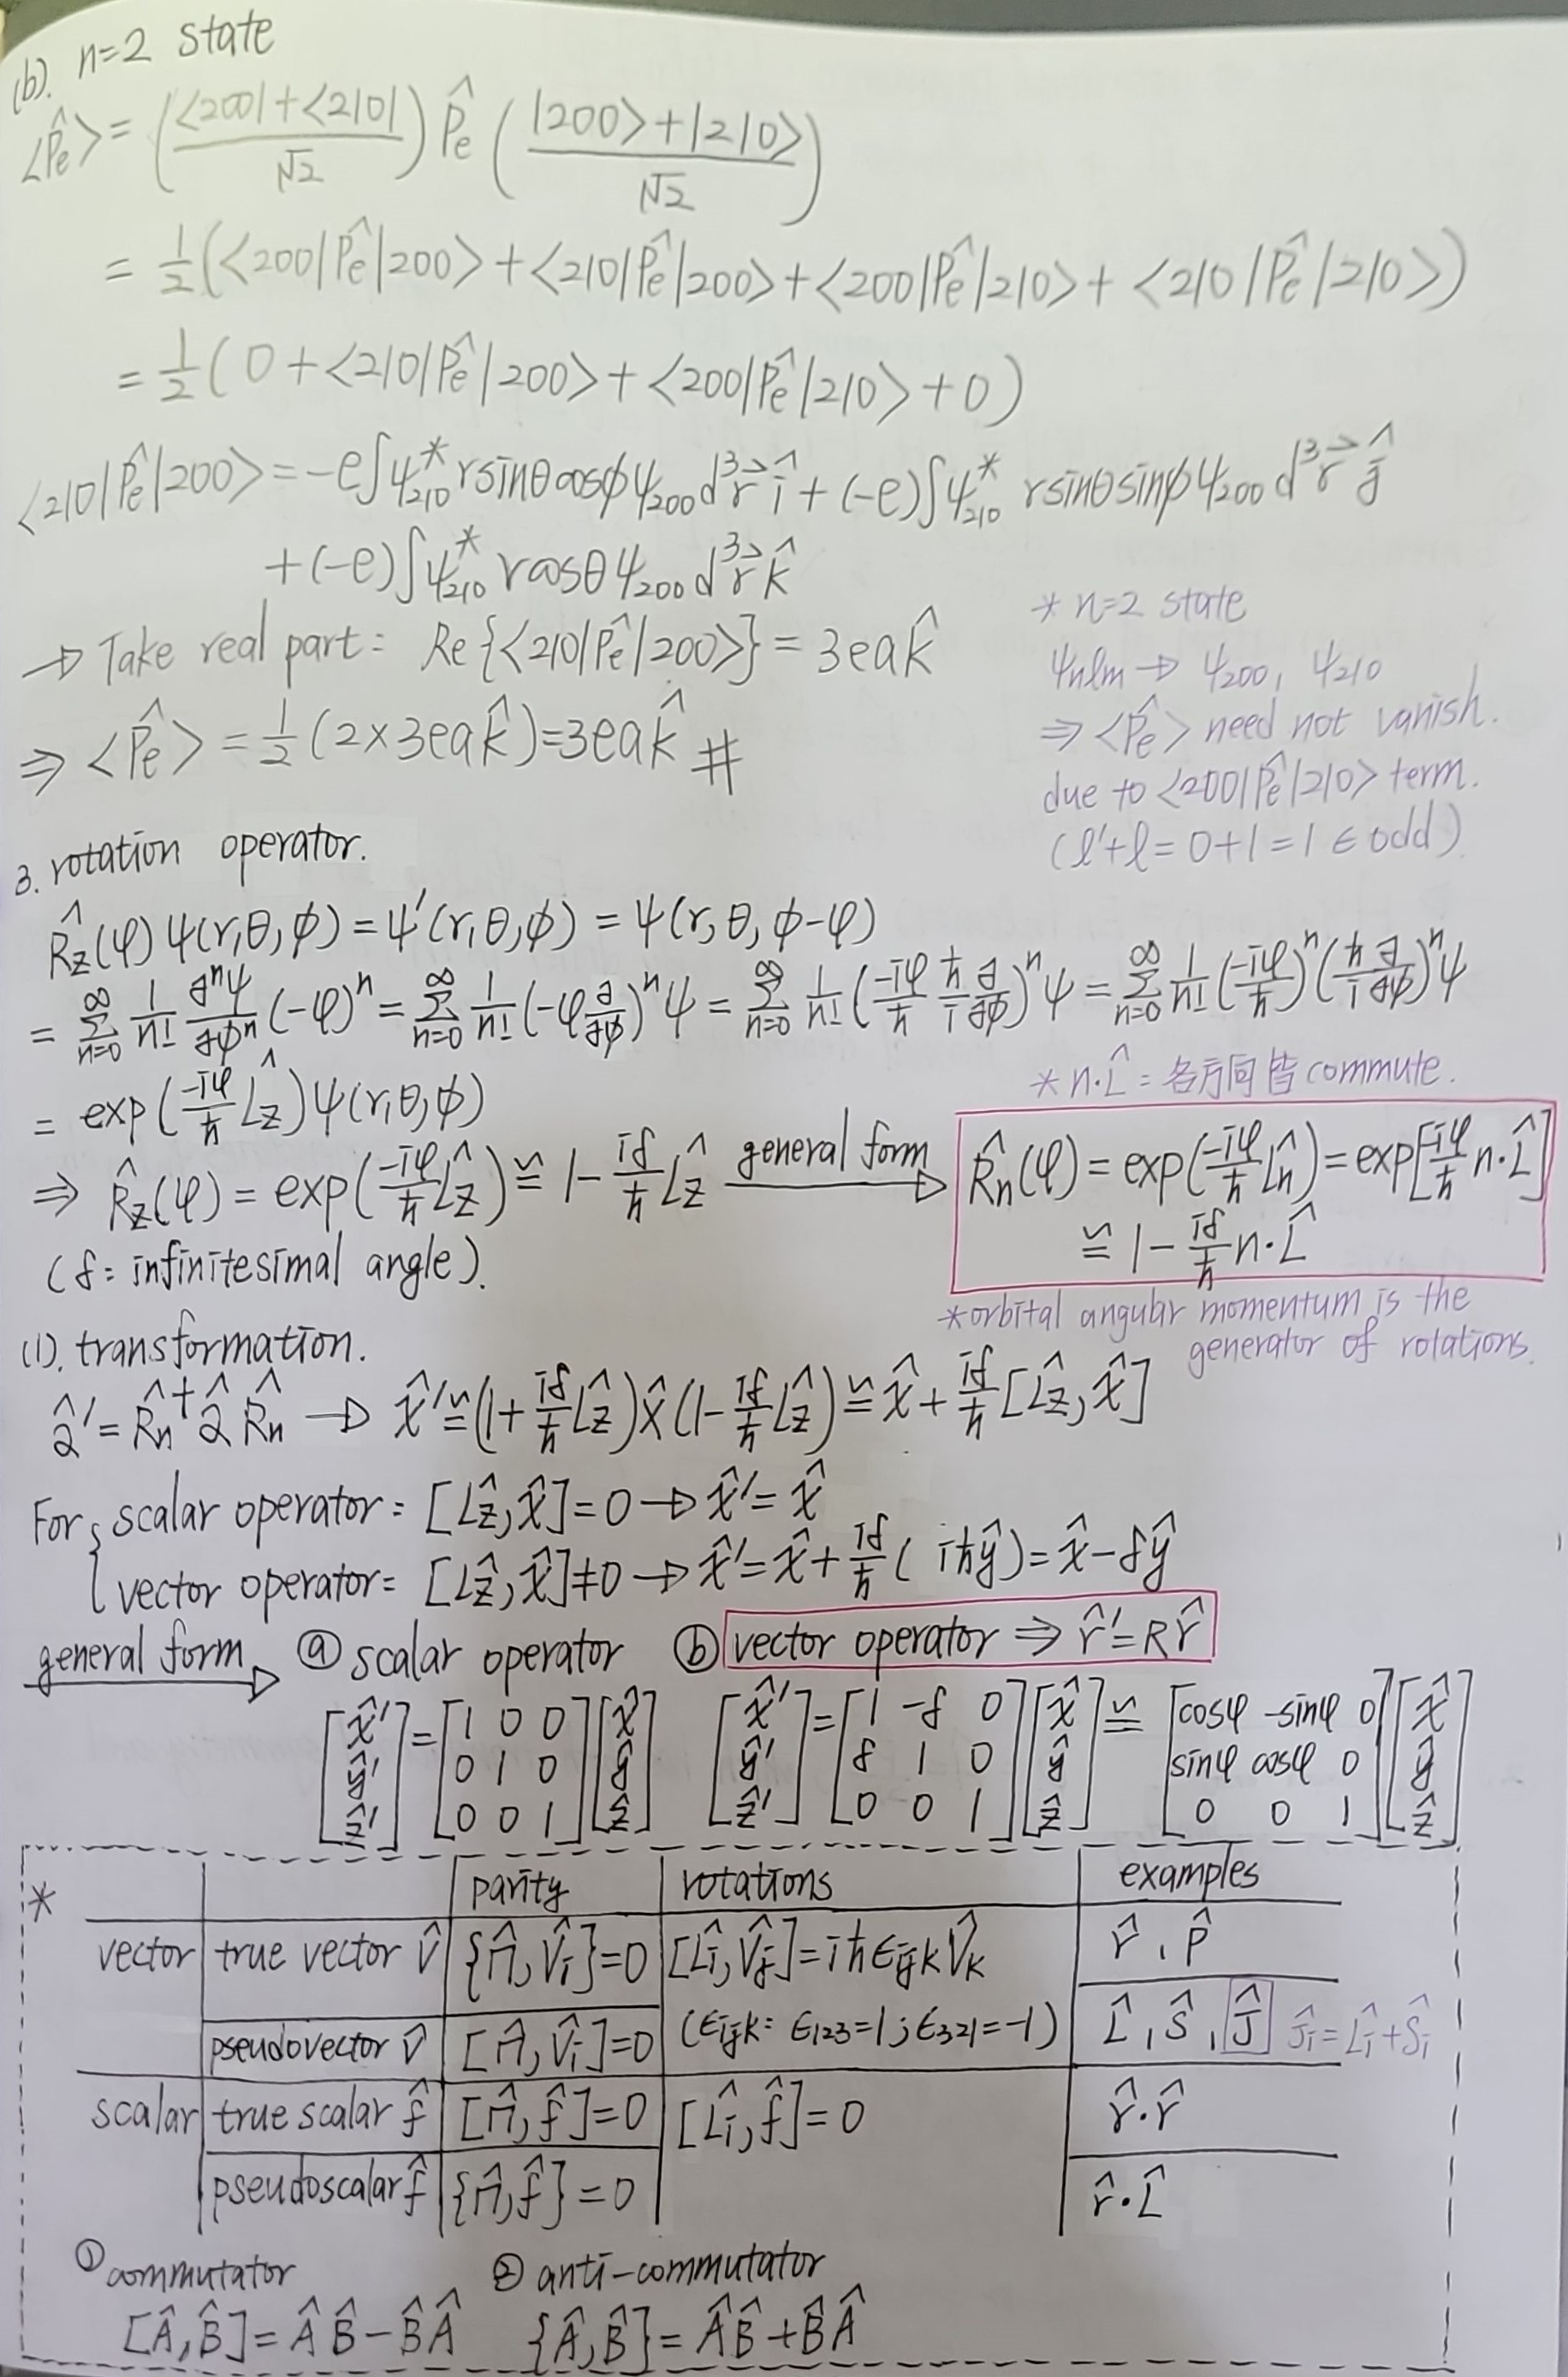 (b). n=2 state
⟨P̂e⟩ = ( (⟨200|+⟨210|)/√2 ) P̂e ( (|200⟩+|210⟩)/√2 )
= 1/2(⟨200|P̂e|200⟩+⟨210|P̂e|200⟩+⟨200|P̂e|210⟩+⟨210|P̂e|210⟩)
= 1/2(0+⟨210|P̂e|200⟩+⟨200|P̂e|210⟩+0)
⟨210|P̂e|200⟩=-e∫ψ*₂₁₀ rsinθcosϕψ₂₀₀ d³r⃗ î+(-e)∫ψ*₂₁₀ rsinθsinϕψ₂₀₀ d³r⃗ ĵ
+(-e)∫ψ*₂₁₀ rcosθψ₂₀₀ d³r⃗ k̂
→ Take real part: Re{⟨210|P̂e|200⟩}=3eak̂
⇒ ⟨P̂e⟩=1/2(2×3eak̂)=3eak̂ #
* n=2 state
ψnlm → ψ₂₀₀, ψ₂₁₀
⇒ ⟨P̂e⟩ need not vanish.
due to ⟨200|P̂e|210⟩ term.
(l'+l=0+1=1∈odd)
3. rotation operator.
R̂z(φ)ψ(r,θ,ϕ)=ψ'(r,θ,ϕ)=ψ(r,θ,ϕ-φ)
= Σ_{n=0}^{∞} 1/n! ∂ⁿψ/∂ϕⁿ (-φ)ⁿ = Σ_{n=0}^{∞} 1/n! (-φ ∂/∂ϕ)ⁿψ = Σ_{n=0}^{∞} 1/n! (-iφ/ħ ħ/i ∂/∂ϕ)ⁿψ = Σ_{n=0}^{∞} 1/n! (-iφ/ħ)ⁿ(ħ/i ∂/∂ϕ)ⁿψ
= exp(-iφ/ħ L̂z)ψ(r,θ,ϕ)
* n·L̂ = 各方向皆commute.
⇒ R̂z(φ)=exp(-iφ/ħ L̂z)≅1-iδ/ħ L̂z general form → R̂n(φ)=exp(-iφ/ħ L̂n)=exp[-iφ/ħ n·L̂]
≅1-iδ/ħ n·L̂
(δ= infinitesimal angle).
*orbital angular momentum is the
generator of rotations.
(1). transformation.
Q̂'=R̂n†Q̂R̂n → x̂'≅(1+iδ/ħ L̂z)x̂(1-iδ/ħ L̂z)≅x̂+iδ/ħ[L̂z,x̂]
For { scalar operator= [L̂z,x̂]=0→x̂'=x̂
vector operator= [L̂z,x̂]≠0→x̂'=x̂+iδ/ħ(iħŷ)=x̂-δŷ
general form → ⓐ scalar operator ⓑ vector operator ⇒ r̂'=Rr̂
[x̂' ŷ' ẑ']=[1 0 0; 0 1 0; 0 0 1][x̂ ŷ ẑ] [x̂' ŷ' ẑ']=[1 -δ 0; δ 1 0; 0 0 1][x̂ ŷ ẑ]≅[cosφ -sinφ 0; sinφ cosφ 0; 0 0 1][x̂ ŷ ẑ]
* parity rotations examples
vector true vector V̂ {Π̂,V̂i}=0 [L̂i,V̂j]=iħϵijkV̂k r̂, p̂
pseudovector V̂ [Π̂,V̂i]=0 (ϵijk: ϵ123=1;ϵ321=-1) L̂, Ŝ, Ĵ Ĵi=L̂i+Ŝi
scalar true scalar f̂ [Π̂,f̂]=0 [L̂i,f̂]=0 r̂·r̂
pseudoscalar f̂ {Π̂,f̂}=0 r̂·L̂
① commutator ② anti-commutator
[Â,B̂]=ÂB̂-B̂Â {Â,B̂}=ÂB̂+B̂Â